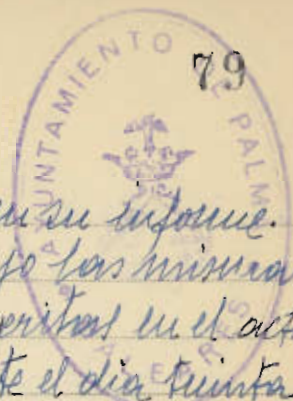 79
AYUNTAMIENTO DE PALMA
en su informe.
jo las misma
eritas en el act
te el dia treinta